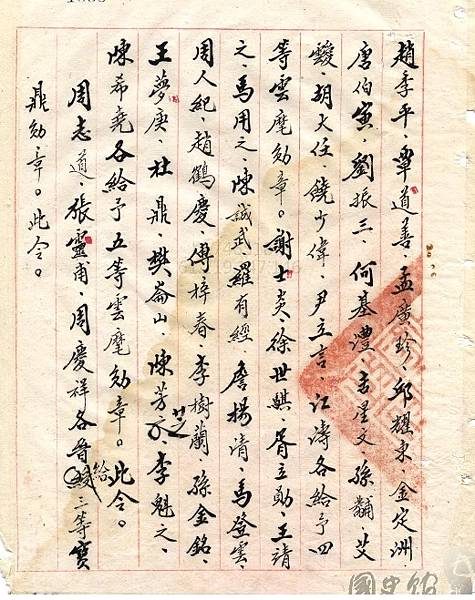 趙季平、覃道善、孟廣珍、邱耀東、金定洲、
唐伯寅、劉振三、何基灃、吉星文、孫黼、艾
靉、胡大任、饒少偉、尹立言、江濤各給予四
等雲麾勛章。謝士炎、徐世騏、胥立勛、王靖
之、馬用之、陳誠武、羅有經、詹揚清、馬登雲、
周人紀、趙鶴慶、傅梓春、李樹蘭、孫金銘、
王夢庚、杜鼎、樊崙山、陳芳芝、李魁之、
陳希堯各給予五等雲麾勛章。此令。
周志道、張靈甫、周慶祥各晉給三等寶
鼎勛章。此令。
國史館